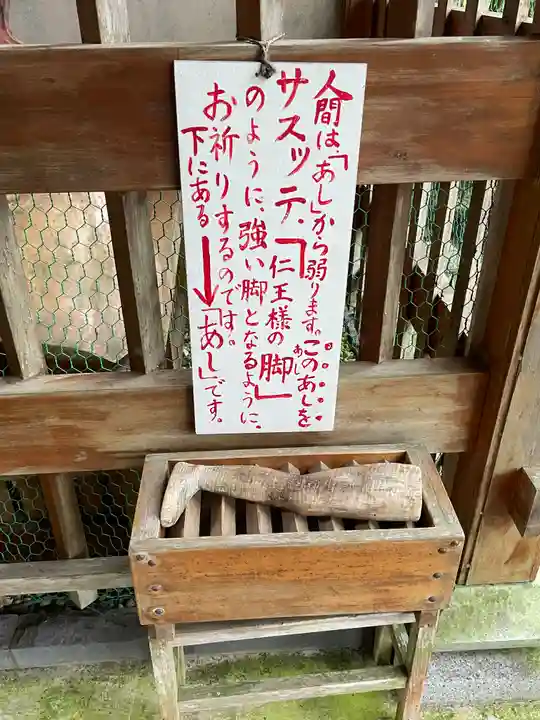 人間は、「あし」から弱ります。このあしを
サスッテ、「仁王様の脚」
あし
のように、強い脚となるように、
お祈りするのです。
下にある→「あし」です。